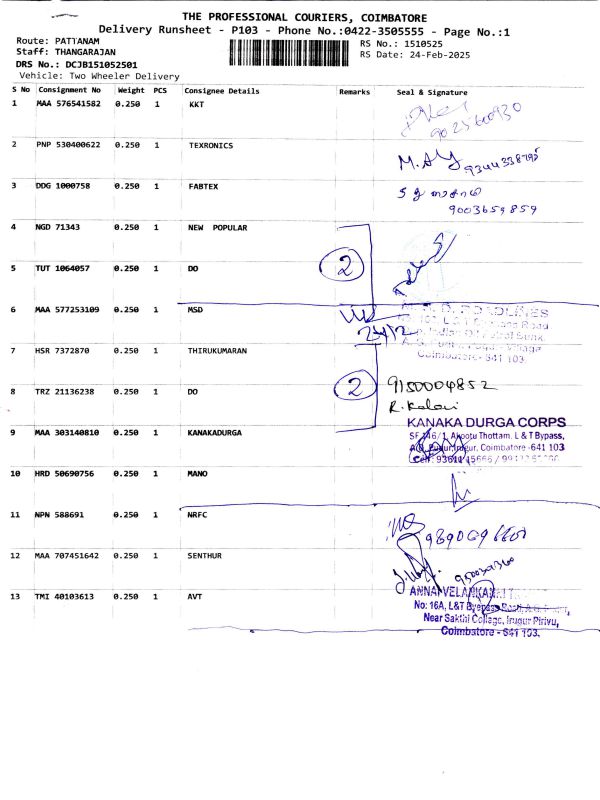 THE PROFESSIONAL COURIERS, COIMBATORE
Delivery Runsheet - P103 - Phone No.:0422-3505555 - Page No.:1
Route: PATTANAM
RS No.: 1510525
Staff: THANGARAJAN
RS Date: 24-Feb-2025
DRS No.: DCJB151052501
Vehicle: Two Wheeler Delivery
S No Consignment No Weight PCS Consignee Details Remarks Seal & Signature
1 MAA 576541582 0.250 1 KKT
2 PNP 530400622 0.250 1 TEXRONICS
M.
3 DDG 1000758 0.250 1 FABTEX
9003659859
4 NGD 71343 0.250 1 NEW POPULAR
5 TUT 1064057 0.250 1 DO 2
6 MAA 577253109 0.250 1 MSD
24/2
Coimbatore- 641 103
7 HSR 7372870 0.250 1 THIRUKUMARAN
8 TRZ 21136238 0.250 1 DO 2 9150004852
9 MAA 303140810 0.250 1 KANAKADURGA
KANAKA DURGA CORPS
Thottam, L & T Bypass,
Coimbatore -641 103
10 HRD 50690756 0.250 1 MANO
11 NPN 588691 0.250 1 NRFC
12 MAA 707451642 0.250 1 SENTHUR
13 TMI 40103613 0.250 1 AVT
No: 16A, L&T Byepass
Near Sakthi College, Irugur Pirivu,
Coimbatore - 641 103.